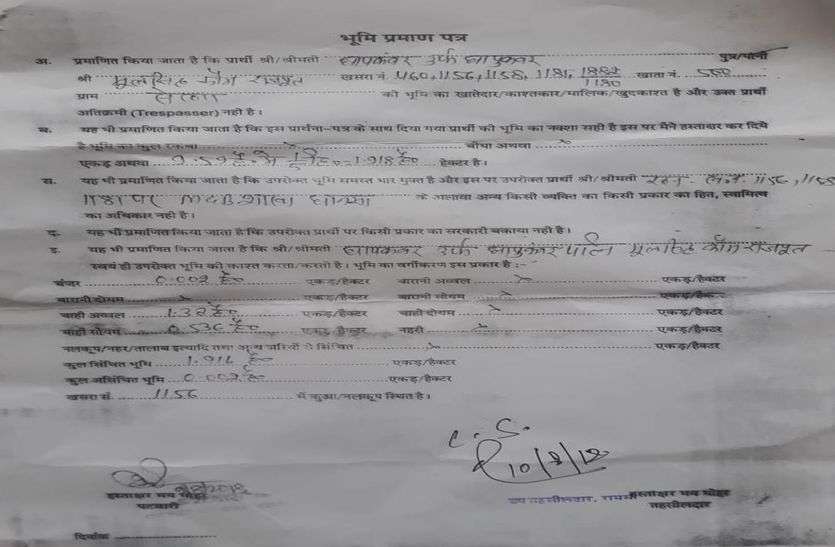 भूमि प्रमाण पत्र
अ. प्रमाणित किया जाता है कि प्रार्थी श्री/श्रीमती उर्फ पुत्र/पत्नी
श्री मूलसिंह कौम राजपूत खसरा नं. 460, 1156, 1158, 1181, खाता नं. 580
ग्राम की भूमि का खातेदार/काश्तकार/मालिक/खुदकाश्त है और उक्त प्रार्थी
अतिक्रमी (Trespasser) नही है।
ब. यह भी प्रमाणित किया जाता है कि इस प्रार्थना-पत्र के साथ दिया गया प्रार्थी की भूमि का नक्शा सही है इस पर मैने हस्ताक्षर कर दिये
है भूमि का कुल रकबा x बीघा अथवा x
एकड़ अथवा 1.918 है० हेक्टर है।
स. यह भी प्रमाणित किया जाता है कि उपरोक्त भूमि समस्त भार मुक्त है और इस पर उपरोक्त प्रार्थी श्री/श्रीमती 1156, 1158
1181 पर MGB शाखा के अलावा अन्य किसी व्यक्ति का किसी प्रकार का हित, स्वामित्व
का अधिकार नही है।
द. यह भी प्रमाणित किया जाता है कि उपरोक्त प्रार्थी पर किसी प्रकार का सरकारी बकाया नही है।
इ. यह भी प्रमाणित किया जाता है कि श्री/श्रीमती उर्फ पत्नि मूलसिंह कौम राजपूत
स्वयं ही उपरोक्त भूमि की काश्त करता/करती है। भूमि का वर्गीकरण इस प्रकार है :-
बंजर 0.002 है० एकड़/हैक्टर बारानी अव्वल x एकड़/हैक्टर
बारानी दोयम x एकड़/हैक्टर बारानी सोयम x एकड़/हैक्टर
चाही अव्वल 1.38 है० एकड़/हैक्टर चाही दोयम x एकड़/हैक्टर
चाही सोयम 0.536 है० एकड़/हैक्टर नहरी x एकड़/हैक्टर
नलकूप/नहर/तालाब इत्यादि तथा अन्य स्रोतों से सिंचित x एकड़/हैक्टर
कुल सिंचित भूमि 1.916 है० एकड़/हैक्टर
कुल असिंचित भूमि 0.002 है० एकड़/हैक्टर
खसरा सं. 1156 में कुआ/नलकूप स्थित है।
C. S.
10/9/18
हस्ताक्षर मय मोहर
पटवारी
उप तहसीलदार,
हस्ताक्षर मय मोहर
तहसीलदार
दिनांक